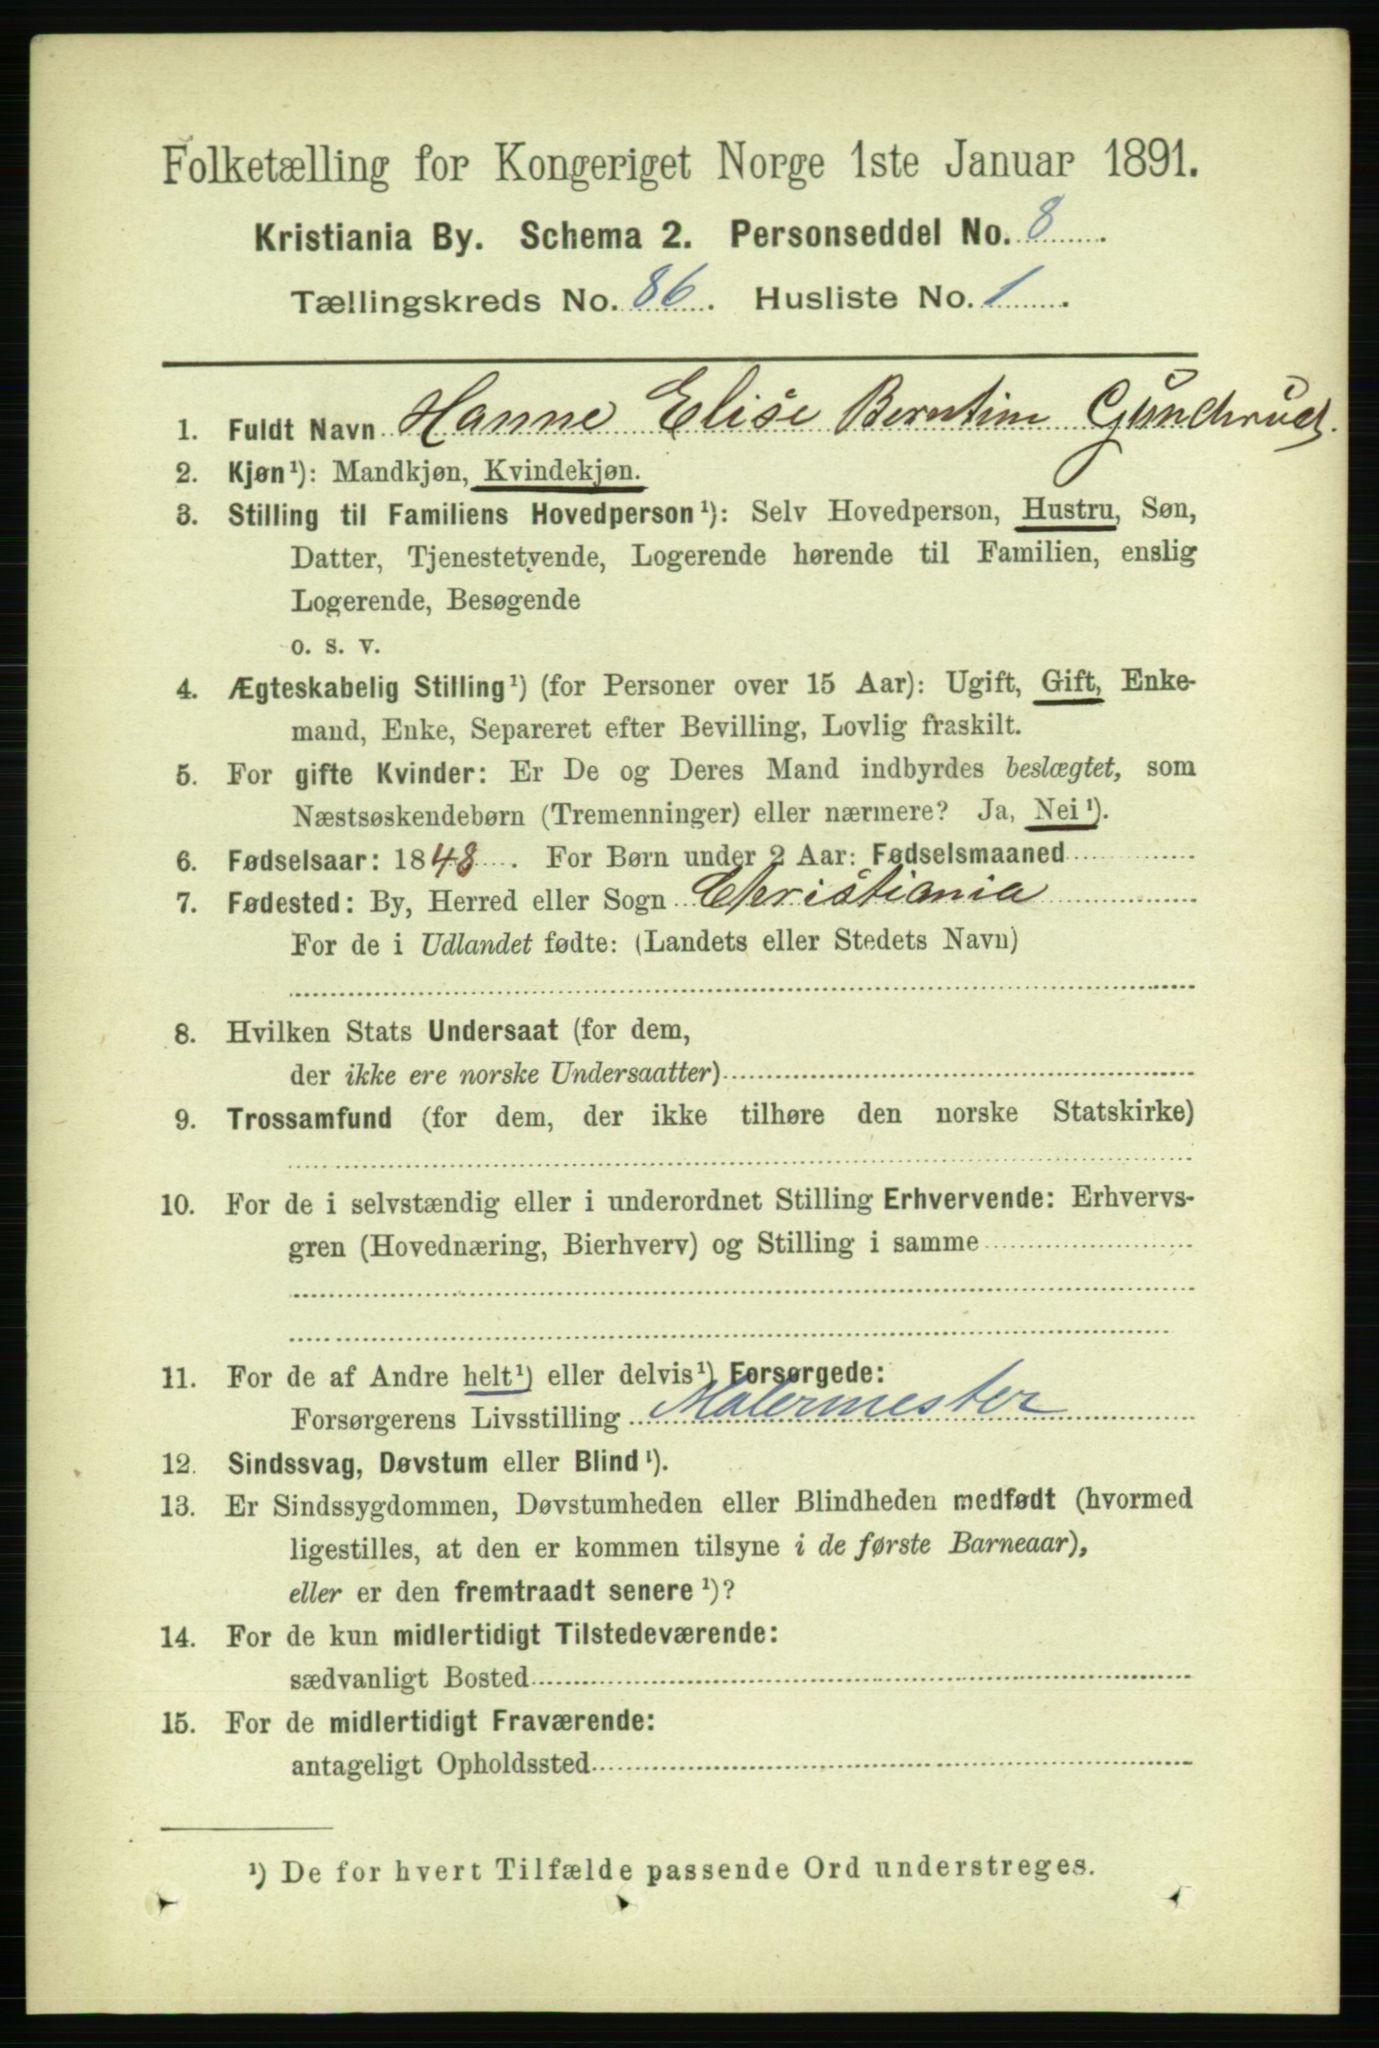 Folketælling for Kongeriget Norge 1ste Januar 1891.
Kristiania By. Schema 2. Personseddel No. 8
Tællingskreds No. 86. Husliste No. 1.
1. Fuldt Navn Hanne Elise Berntine Gundrud.
2. Kjøn¹): Mandkjøn, Kvindekjøn.
3. Stilling til Familiens Hovedperson¹): Selv Hovedperson, Hustru, Søn,
Datter, Tjenestetyende, Logerende hørende til Familien, enslig
Logerende, Besøgende
o. s. v.
4. Ægteskabelig Stilling¹) (for Personer over 15 Aar): Ugift, Gift, Enke-
mand, Enke, Separeret efter Bevilling, Lovlig fraskilt.
5. For gifte Kvinder: Er De og Deres Mand indbyrdes beslægtet, som
Næstsøskendebørn (Tremenninger) eller nærmere? Ja, Nei¹).
6. Fødselsaar: 1848. For Børn under 2 Aar: Fødselsmaaned
7. Fødested: By, Herred eller Sogn Christiania
For de i Udlandet fødte: (Landets eller Stedets Navn)
8. Hvilken Stats Undersaat (for dem,
der ikke ere norske Undersaatter)
9. Trossamfund (for dem, der ikke tilhøre den norske Statskirke)
10. For de i selvstændig eller i underordnet Stilling Erhvervende: Erhvervs-
gren (Hovednæring, Bierhverv) og Stilling i samme
11. For de af Andre helt¹) eller delvis¹) Forsørgede:
Forsørgerens Livsstilling Malermester
12. Sindssvag, Døvstum eller Blind¹).
13. Er Sindssygdommen, Døvstumheden eller Blindheden medfødt (hvormed
ligestilles, at den er kommen tilsyne i de første Barneaar),
eller er den fremtraadt senere¹)?
14. For de kun midlertidigt Tilstedeværende:
sædvanligt Bosted
15. For de midlertidigt Fraværende:
antageligt Opholdssted
¹) De for hvert Tilfælde passende Ord understreges.